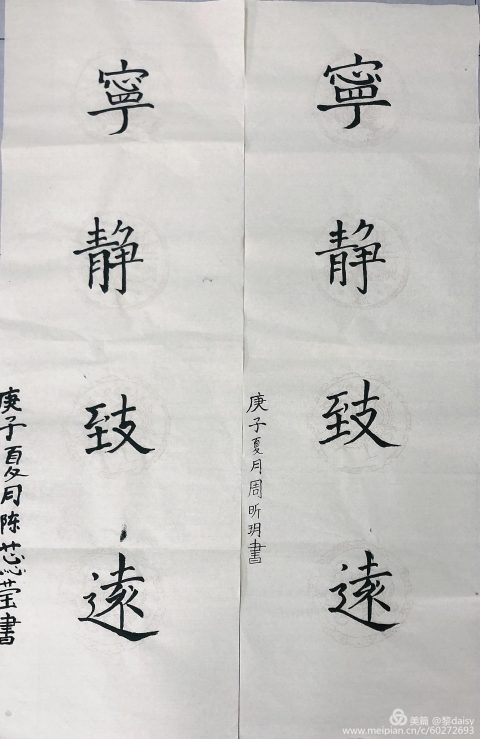 寧静致遠
庚子夏月周昕玥書
寧静致遠
庚子夏月陈蕊莹書
美篇 @黎daisy
www.meipian.cn/c/60272693